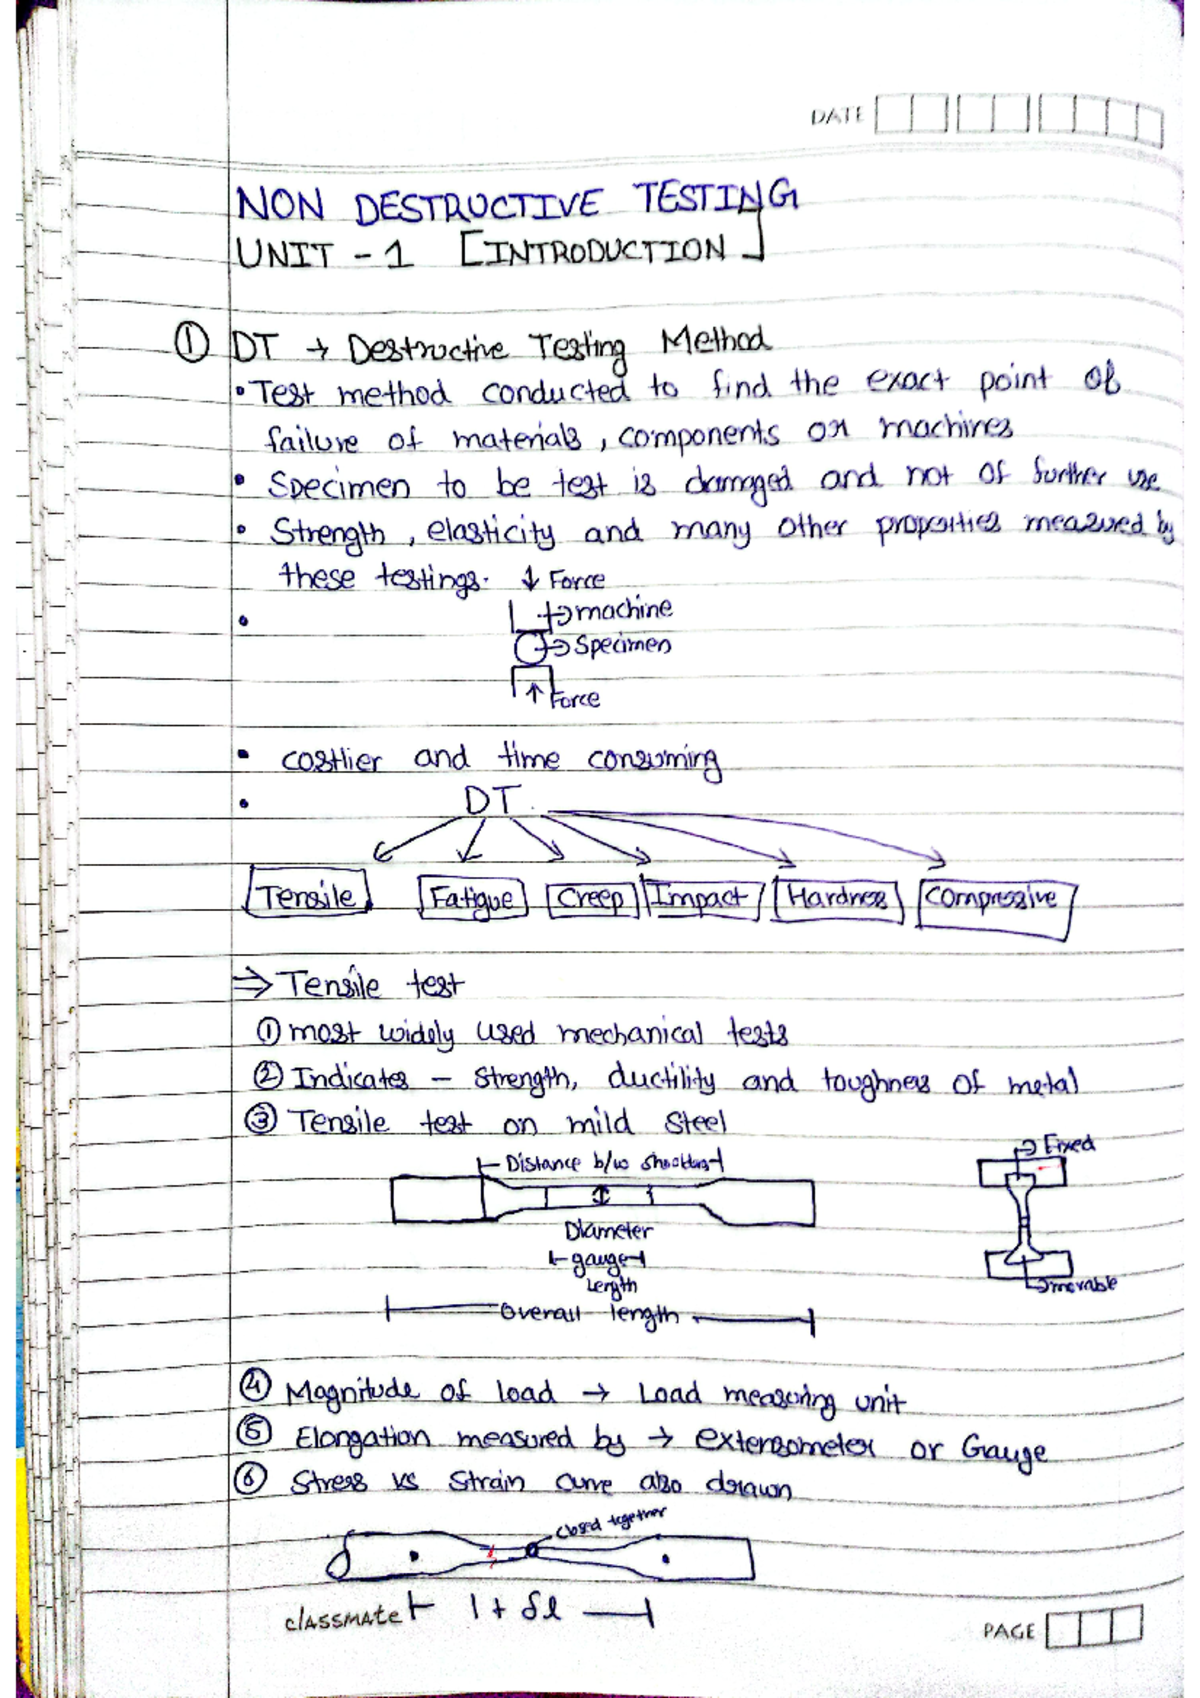 DATE
NON DESTRUCTIVE TESTING
UNIT - 1 [INTRODUCTION]
① DT → Destructive Testing Method
• Test method conducted to find the exact point of
failure of materials, components or machines
• Specimen to be test is damaged and not of further use
• Strength, elasticity and many other properties measured by
these testings.
↓ Force
→ machine
→ Specimen
↑ Force
• costlier and time consuming
• DT
Tensile Fatigue Creep Impact Hardness Compressive
⇒ Tensile test
① most widely used mechanical tests
② Indicates - Strength, ductility and toughness of metal
③ Tensile test on mild steel
→ Fixed
Distance b/w
Diameter
gauge
Length
→ movable
Overall length
④ Magnitude of load → Load measuring unit
⑤ Elongation measured by → extensometer or Gauge
⑥ Stress vs Strain curve also drawn
closed together
l + δl
classmate
PAGE